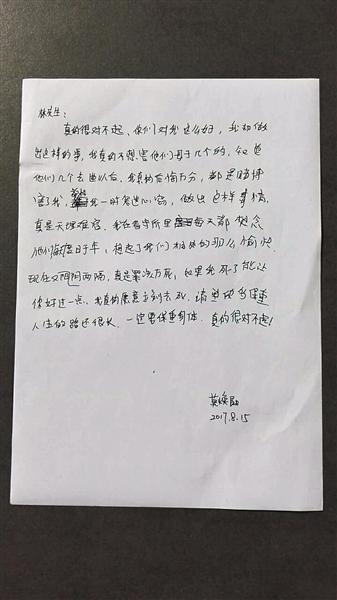 林先生：
真的很对不起、你们对我这么好，我却做
出这样的事，我真的不想害他们母子几个的、知道
他们几个去世以后、我真的后悔万分，都是赌博
害了我，我一时鬼迷心窍，做出这样事情，
真是天理难容。我在看守所里每天都想念
他们每一日子，想起了我们相处的那么愉快，
现在又阴阳两隔，真是罪该万死，如果我死了能让
你好过一点、我真的愿意立刻去死、请您多保重
人生的路还很长、一定要保重身体、真的很对不起！
莫焕晶
2017.8.15